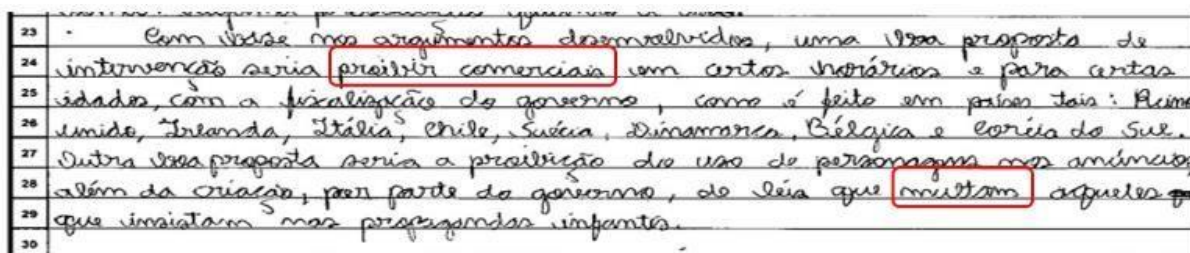 23 Com base nos argumentos desenvolvidos, uma boa proposta de
24 intervenção seria proibir comerciais em certos horários e para certas
25 idades, com a fiscalização do governo, como é feito em países tais: Reino
26 unido, Irlanda, Itália, Chile, Suécia, Dinamarca, Bélgica e Coréia do Sul.
27 Outra boa proposta seria a proibição do uso de personagens nos anúncios,
28 além da criação, por parte do governo, de leis que multam aqueles
29 que insistam nas propagandas infantes.
30